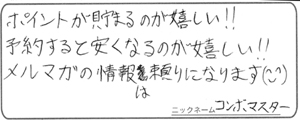 ポイントが貯まるのが嬉しい!!
予約すると安くなるのが嬉しい!!
メルマガの情報は頼りになります(¨)
ニックネーム コンボマスター